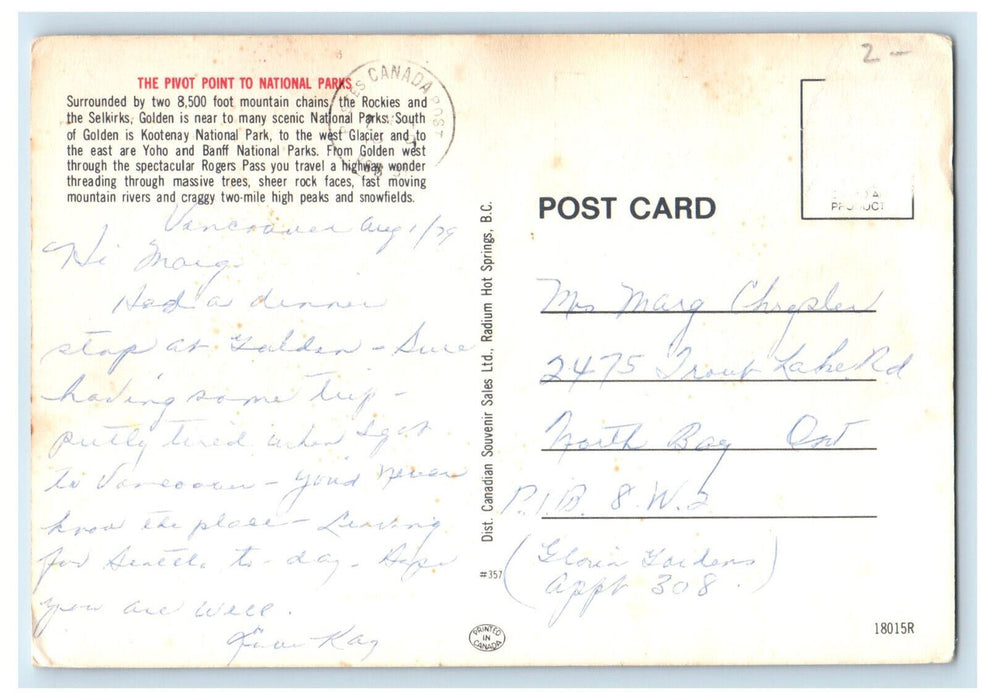 2 -
THE PIVOT POINT TO NATIONAL PARKS
Surrounded by two 8,500 foot mountain chains, the Rockies and
the Selkirks, Golden is near to many scenic National Parks. South
of Golden is Kootenay National Park, to the west Glacier and to
the east are Yoho and Banff National Parks. From Golden west
through the spectacular Rogers Pass you travel a highway wonder
threading through massive trees, sheer rock faces, fast moving
mountain rivers and craggy two-mile high peaks and snowfields.
CANADA
POST
Vancouver Aug 1/79
Hi Marg.
Had a dinner
stop at Golden - Sure
having some trip -
pretty tired when I got
to Vancouver - you'd never
know the place - Leaving
for Seattle to-day. Hope
you are well.
Kay
Dist. Canadian Souvenir Sales Ltd., Radium Hot Springs, B.C.
#357
PRINTED
IN
CANADA
POST CARD
PRODUCT
Mrs Marg Chrysler
2475 Trout Lake Rd
North Bay Ont
P.1.B. 8.W.2
(Gloria Gardens)
Appt 308.
18015R